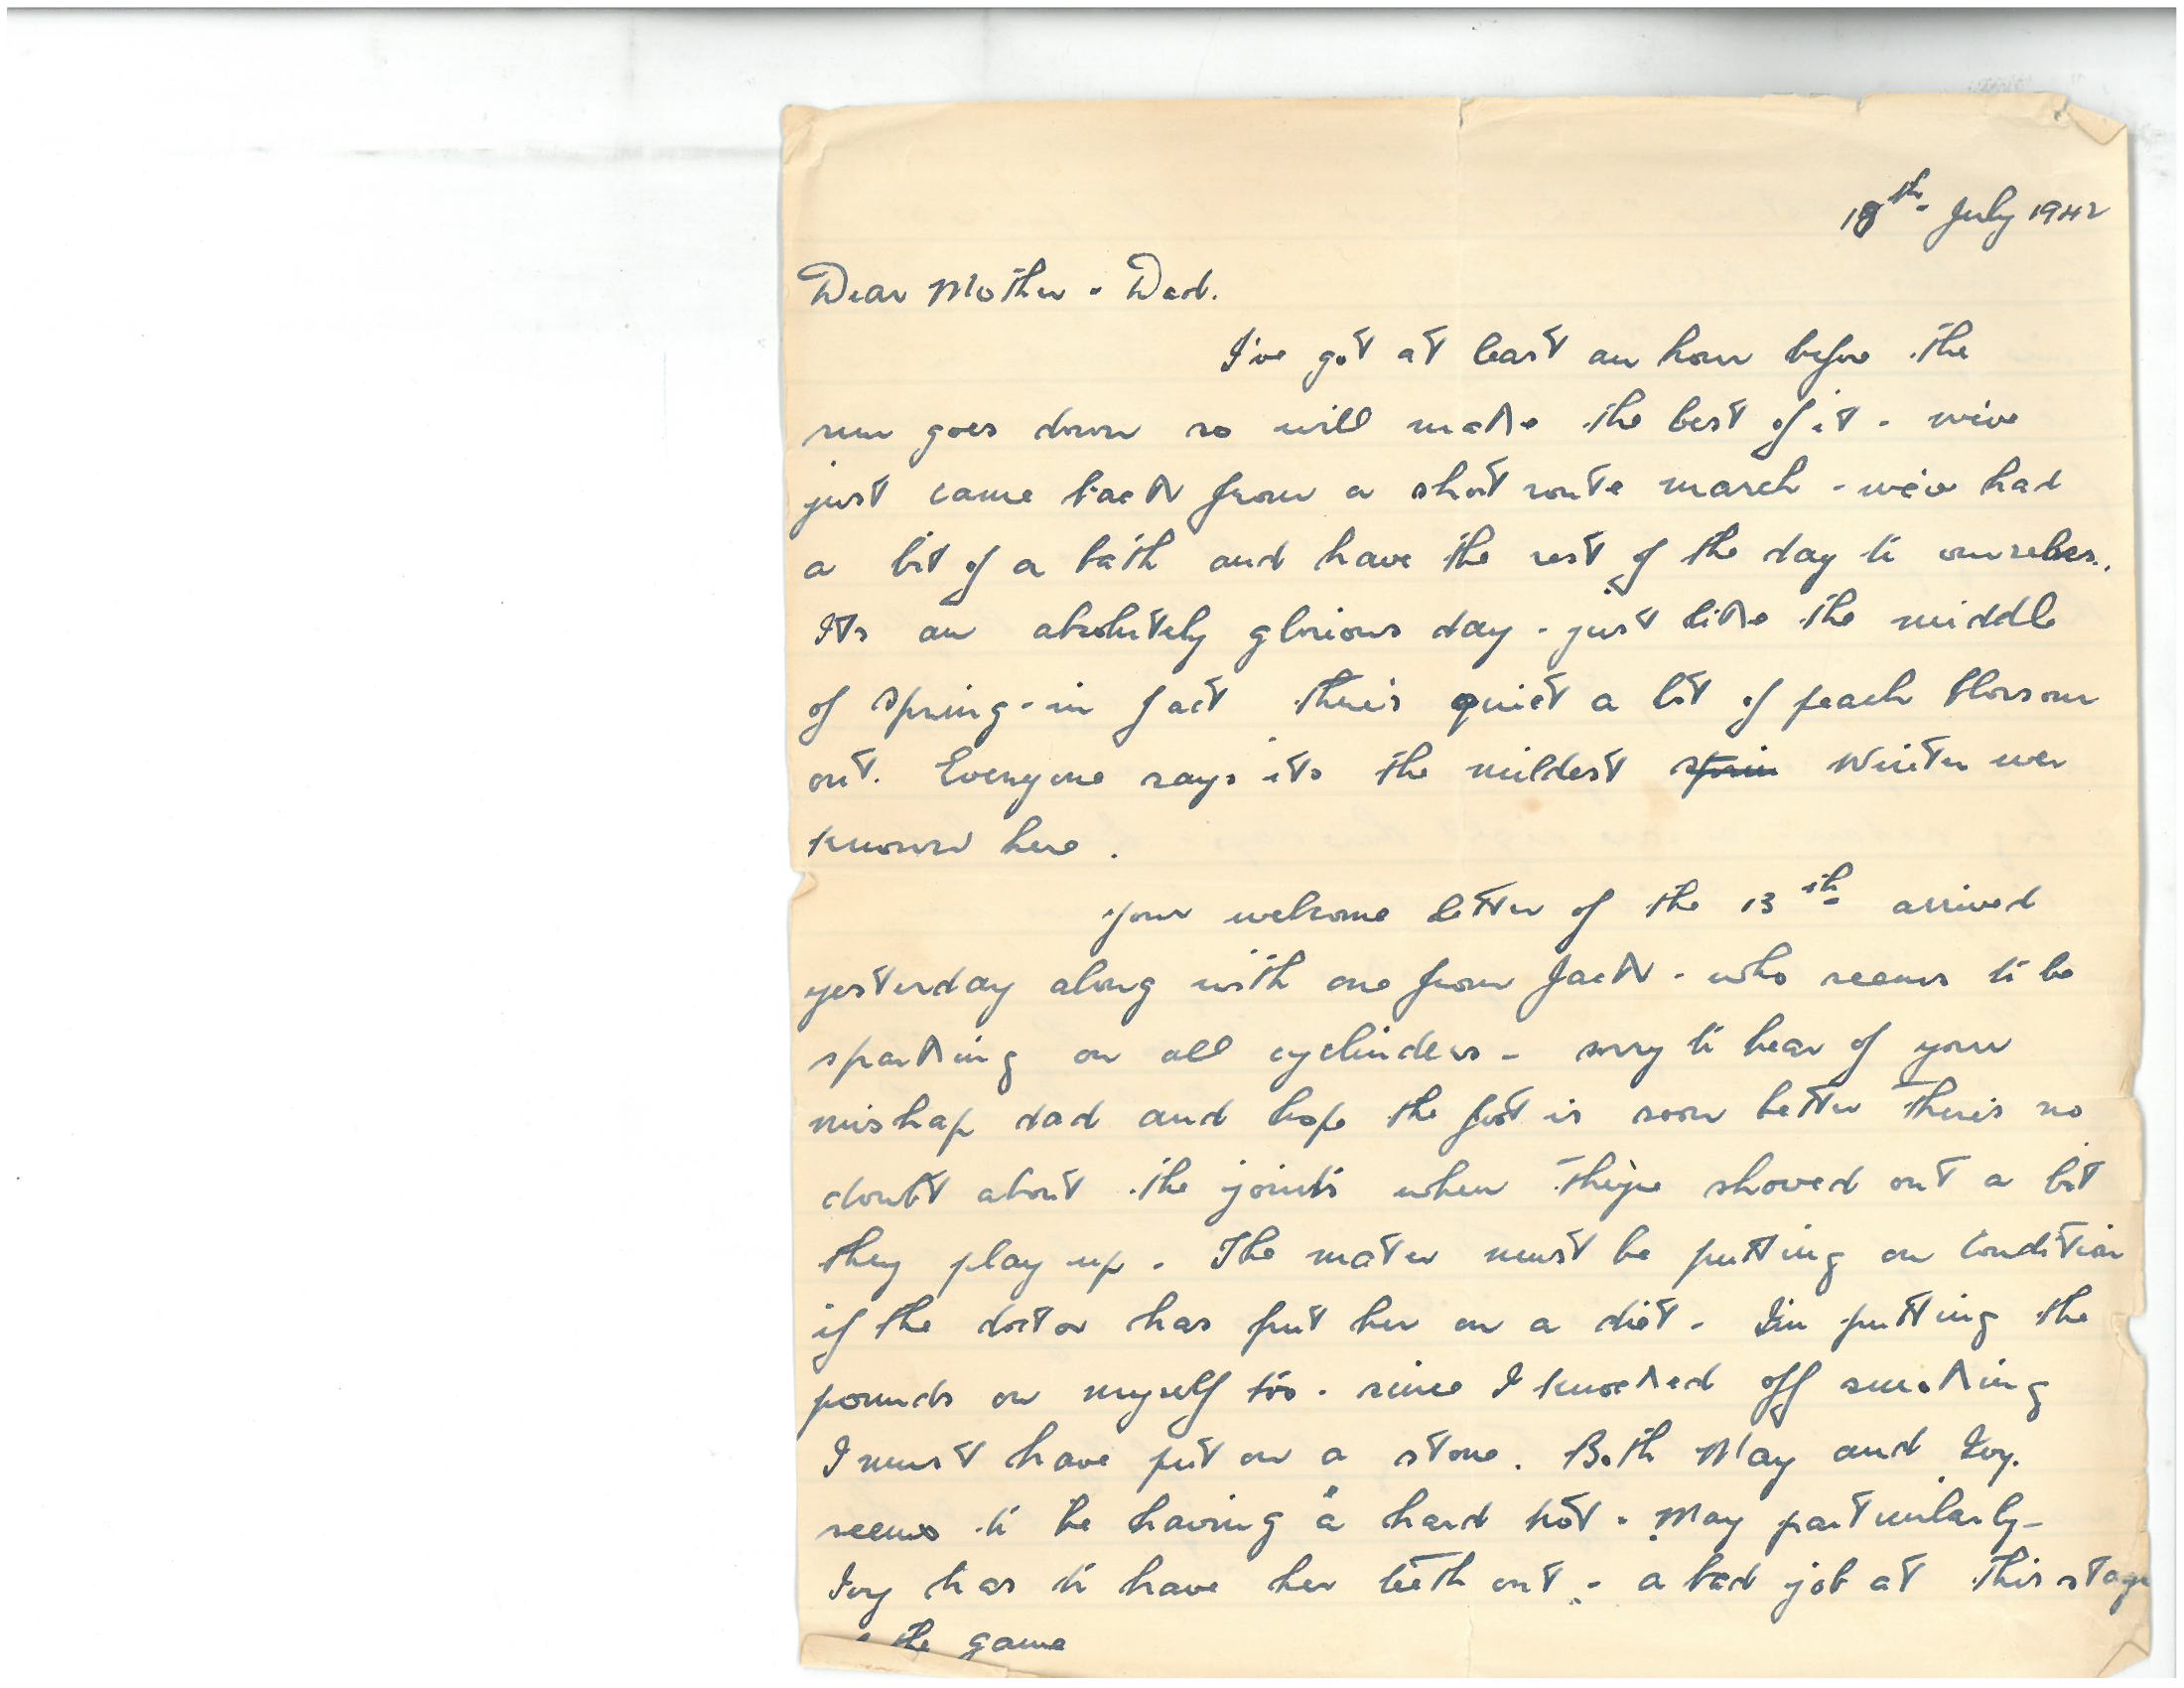 18th July 1942
Dear Mother - Dad.
I've got at least an hour before the
sun goes down so will make the best of it - we've
just came back from a short route march - we've had
a bit of a bath and have the rest of the day to ourselves.
Its an absolutely glorious day - just like the middle
of spring - in fact there's quiet a lot of peach blossom
out. Everyone says its the mildest sprin Winter ever
known here.
Your welcome letter of the 13th arrived
yesterday along with one from Jack - who seems to be
sparking on all cyclinders - sorry to hear of your
mishap dad and hope the foot is soon better there's no
doubt about the joints when they're shoved out a bit
they play up. The mater must be putting on condition
if the doctor has put her on a diet. I'm putting the
pounds on myself too. since I knocked off smoking
I must have put on a stone. Both May and Ivy.
seems to be having a hard trot. May particularly -
Ivy has to have her teeth out - a bad job at this stage
the game